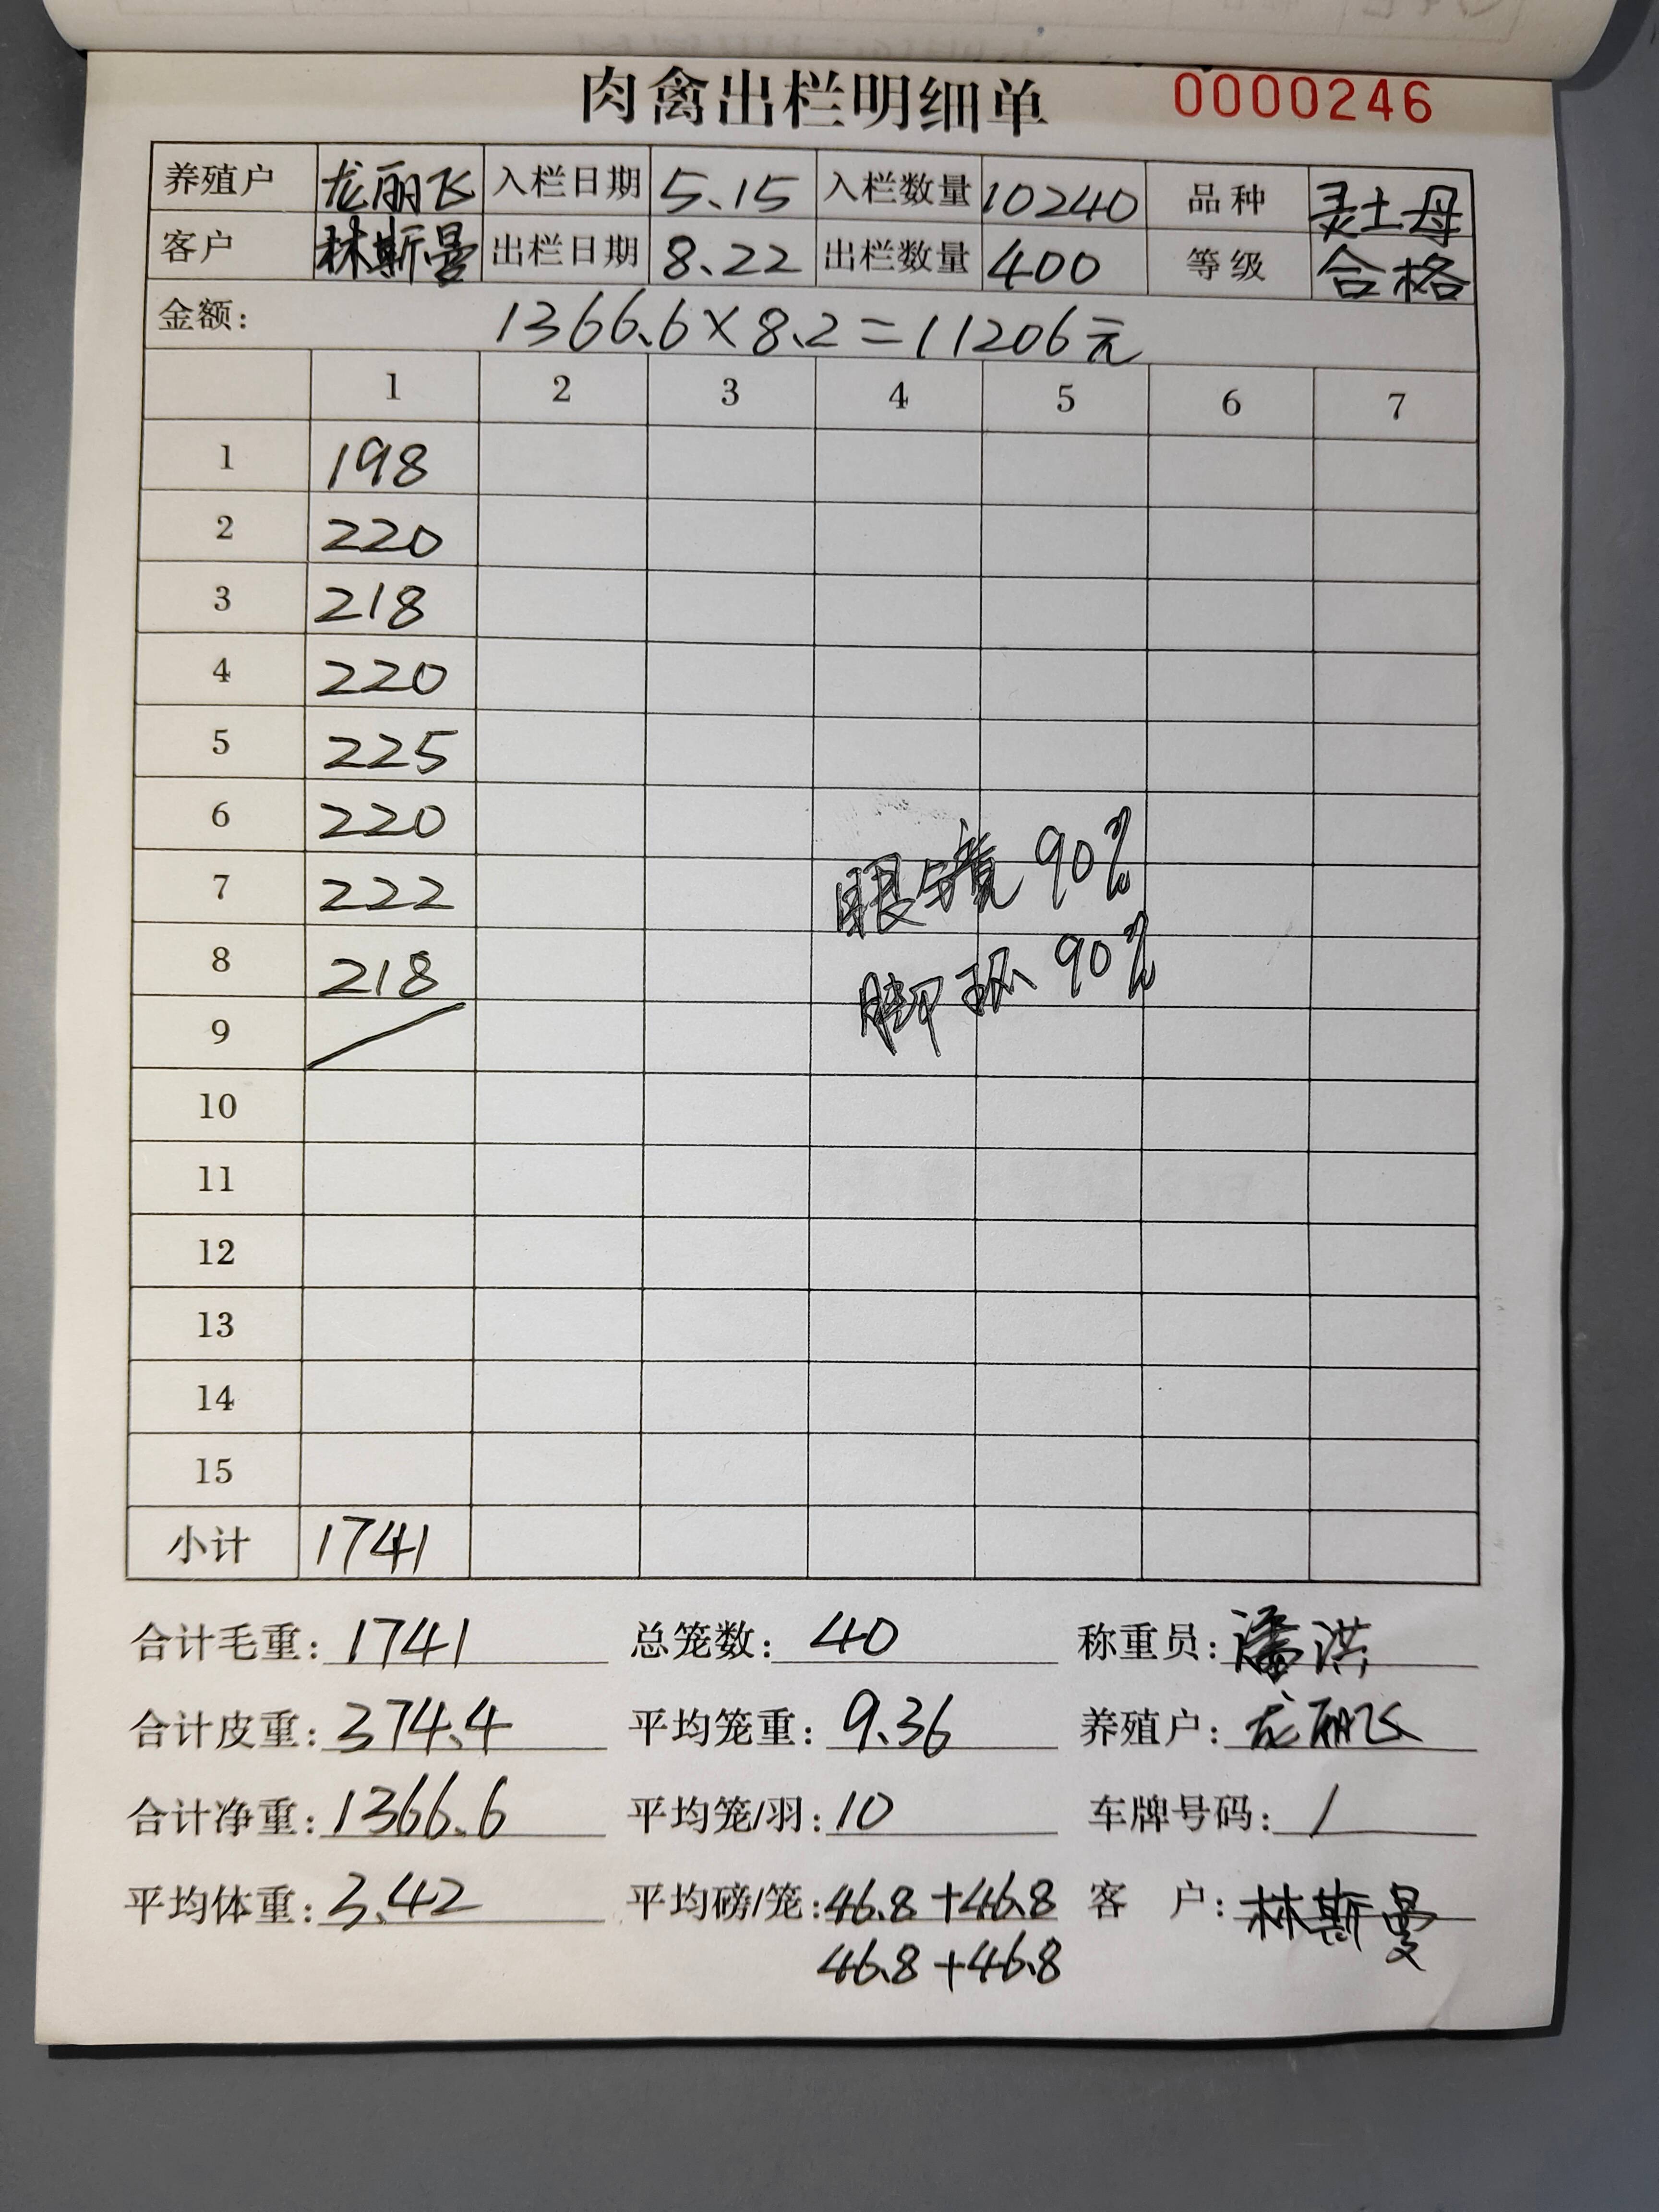 肉禽出栏明细单 0000246
养殖户 龙丽飞 入栏日期 5.15 入栏数量 10240 品种 灵土母
客户 林斯曼 出栏日期 8.22 出栏数量 400 等级 合格
金额: 1366.6×8.2=11206元
1 2 3 4 5 6 7
1 198
2 220
3 218
4 220
5 225
6 220
7 222
眼镜 90%
8 218
脚环 90%
9 /
10
11
12
13
14
15
小计 1741
合计毛重: 1741 总笼数: 40 称重员: 潘洪
合计皮重: 374.4 平均笼重: 9.36 养殖户: 龙丽飞
合计净重: 1366.6 平均笼/羽: 10 车牌号码: /
平均体重: 3.42 平均磅/笼: 46.8+46.8 客户: 林斯曼
46.8+46.8